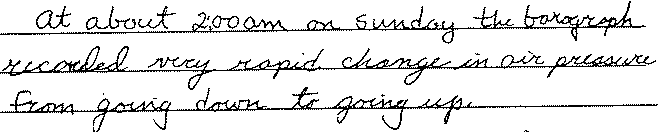 at about 2:00am on sunday the barograph
recorded very rapid change in air pressure
from going down to going up.